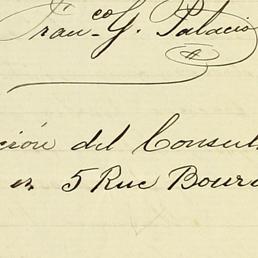 Fran.co G. Palacio
ción del Consul
en 5 Rue Bour